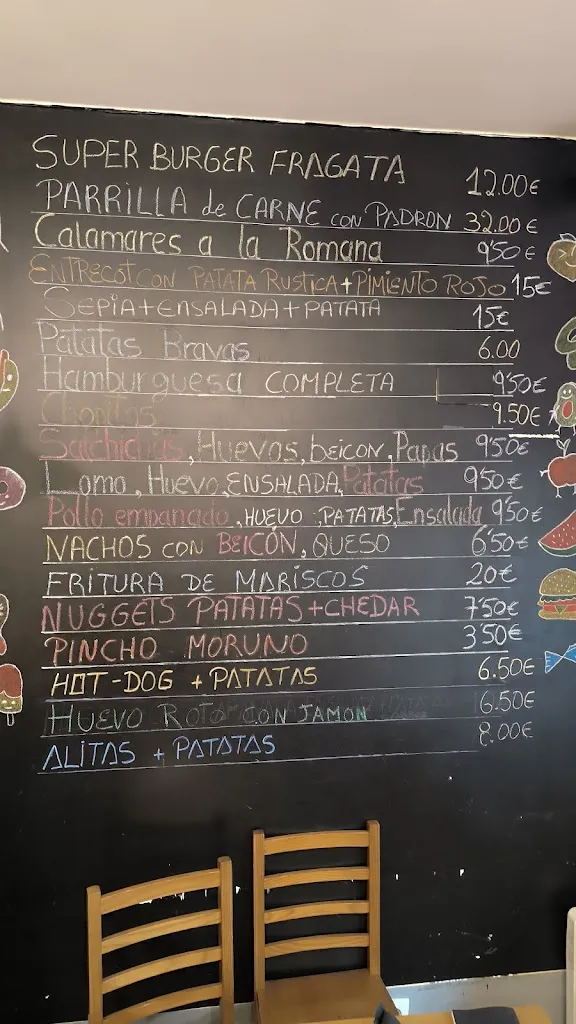 SUPER BURGER FRAGATA 12.00€
PARRILLA de CARNE con PADRON 32.00€
Calamares a la Romana 9'50€
ENTRECOT CON PATATA RUSTICA + PIMIENTO ROJO 15€
SEPIA + ENSALADA + PATATA 15€
Patatas Bravas 6.00
Hamburguesa COMPLETA 9'50€
Chopitos 9.50€
Salchichas, Huevos, beicon, Papas 9'50€
Lomo, Huevo, ENSALADA, Patatas 9'50€
Pollo empanado, HUEVO, PATATAS, Ensalada 9'50€
NACHOS CON BEICON, QUESO 6'50€
FRITURA DE MARISCOS 20€
NUGGETS PATATAS + CHEDAR 7'50€
PINCHO MORUNO 3'50€
HOT-DOG + PATATAS 6.50€
HUEVO ROTO CON JAMON 6.50€
ALITAS + PATATAS 8.00€